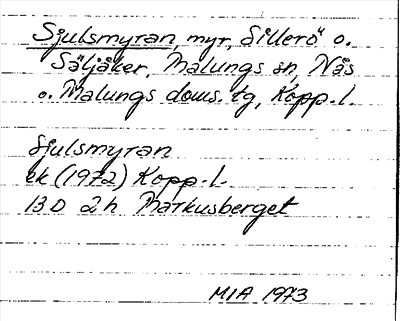 Sjulsmyran, myr, Sillerö o.
Säljåker, Malungs sn, Nås
o. Malungs doms. tg, Kopp. l.
Sjulsmyran
ek (1972) Kopp. l.
13 D 2h Markusberget
MIA 1973